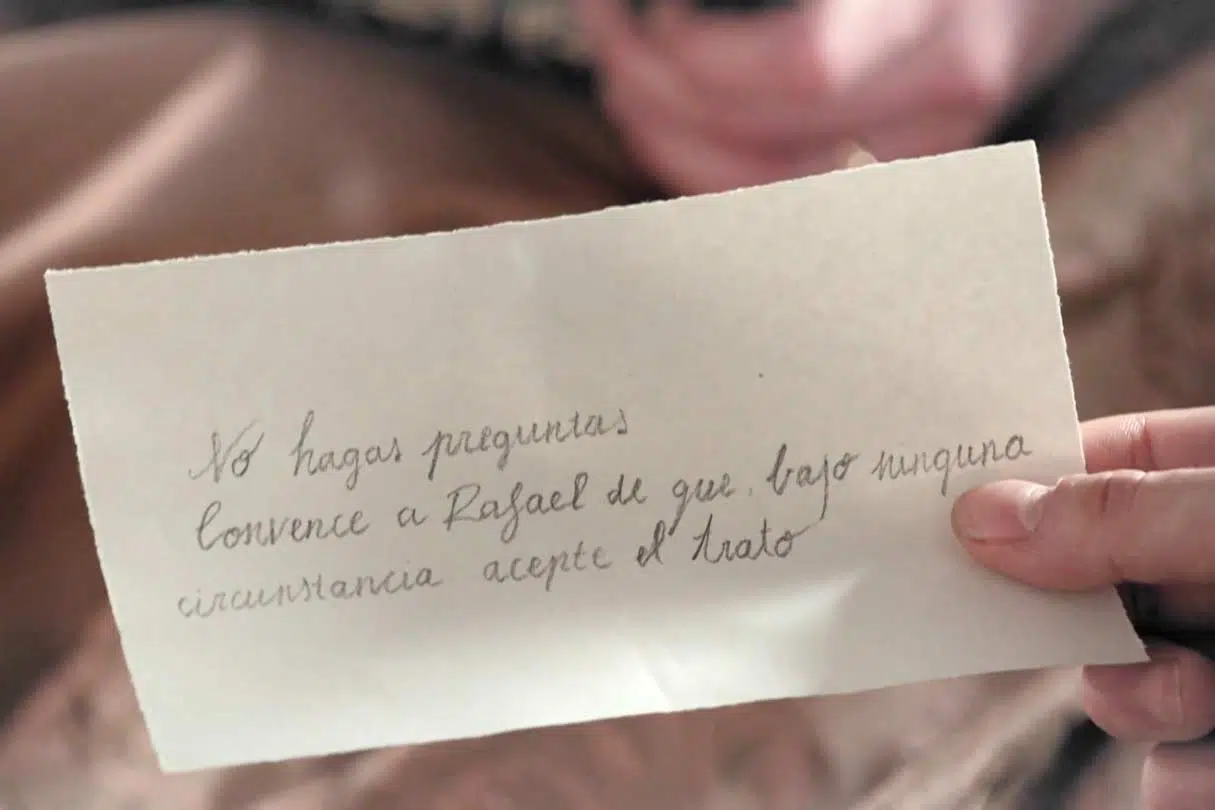 No hagas preguntas
Convence a Rafael de que, bajo ninguna
circunstancia acepte el trato